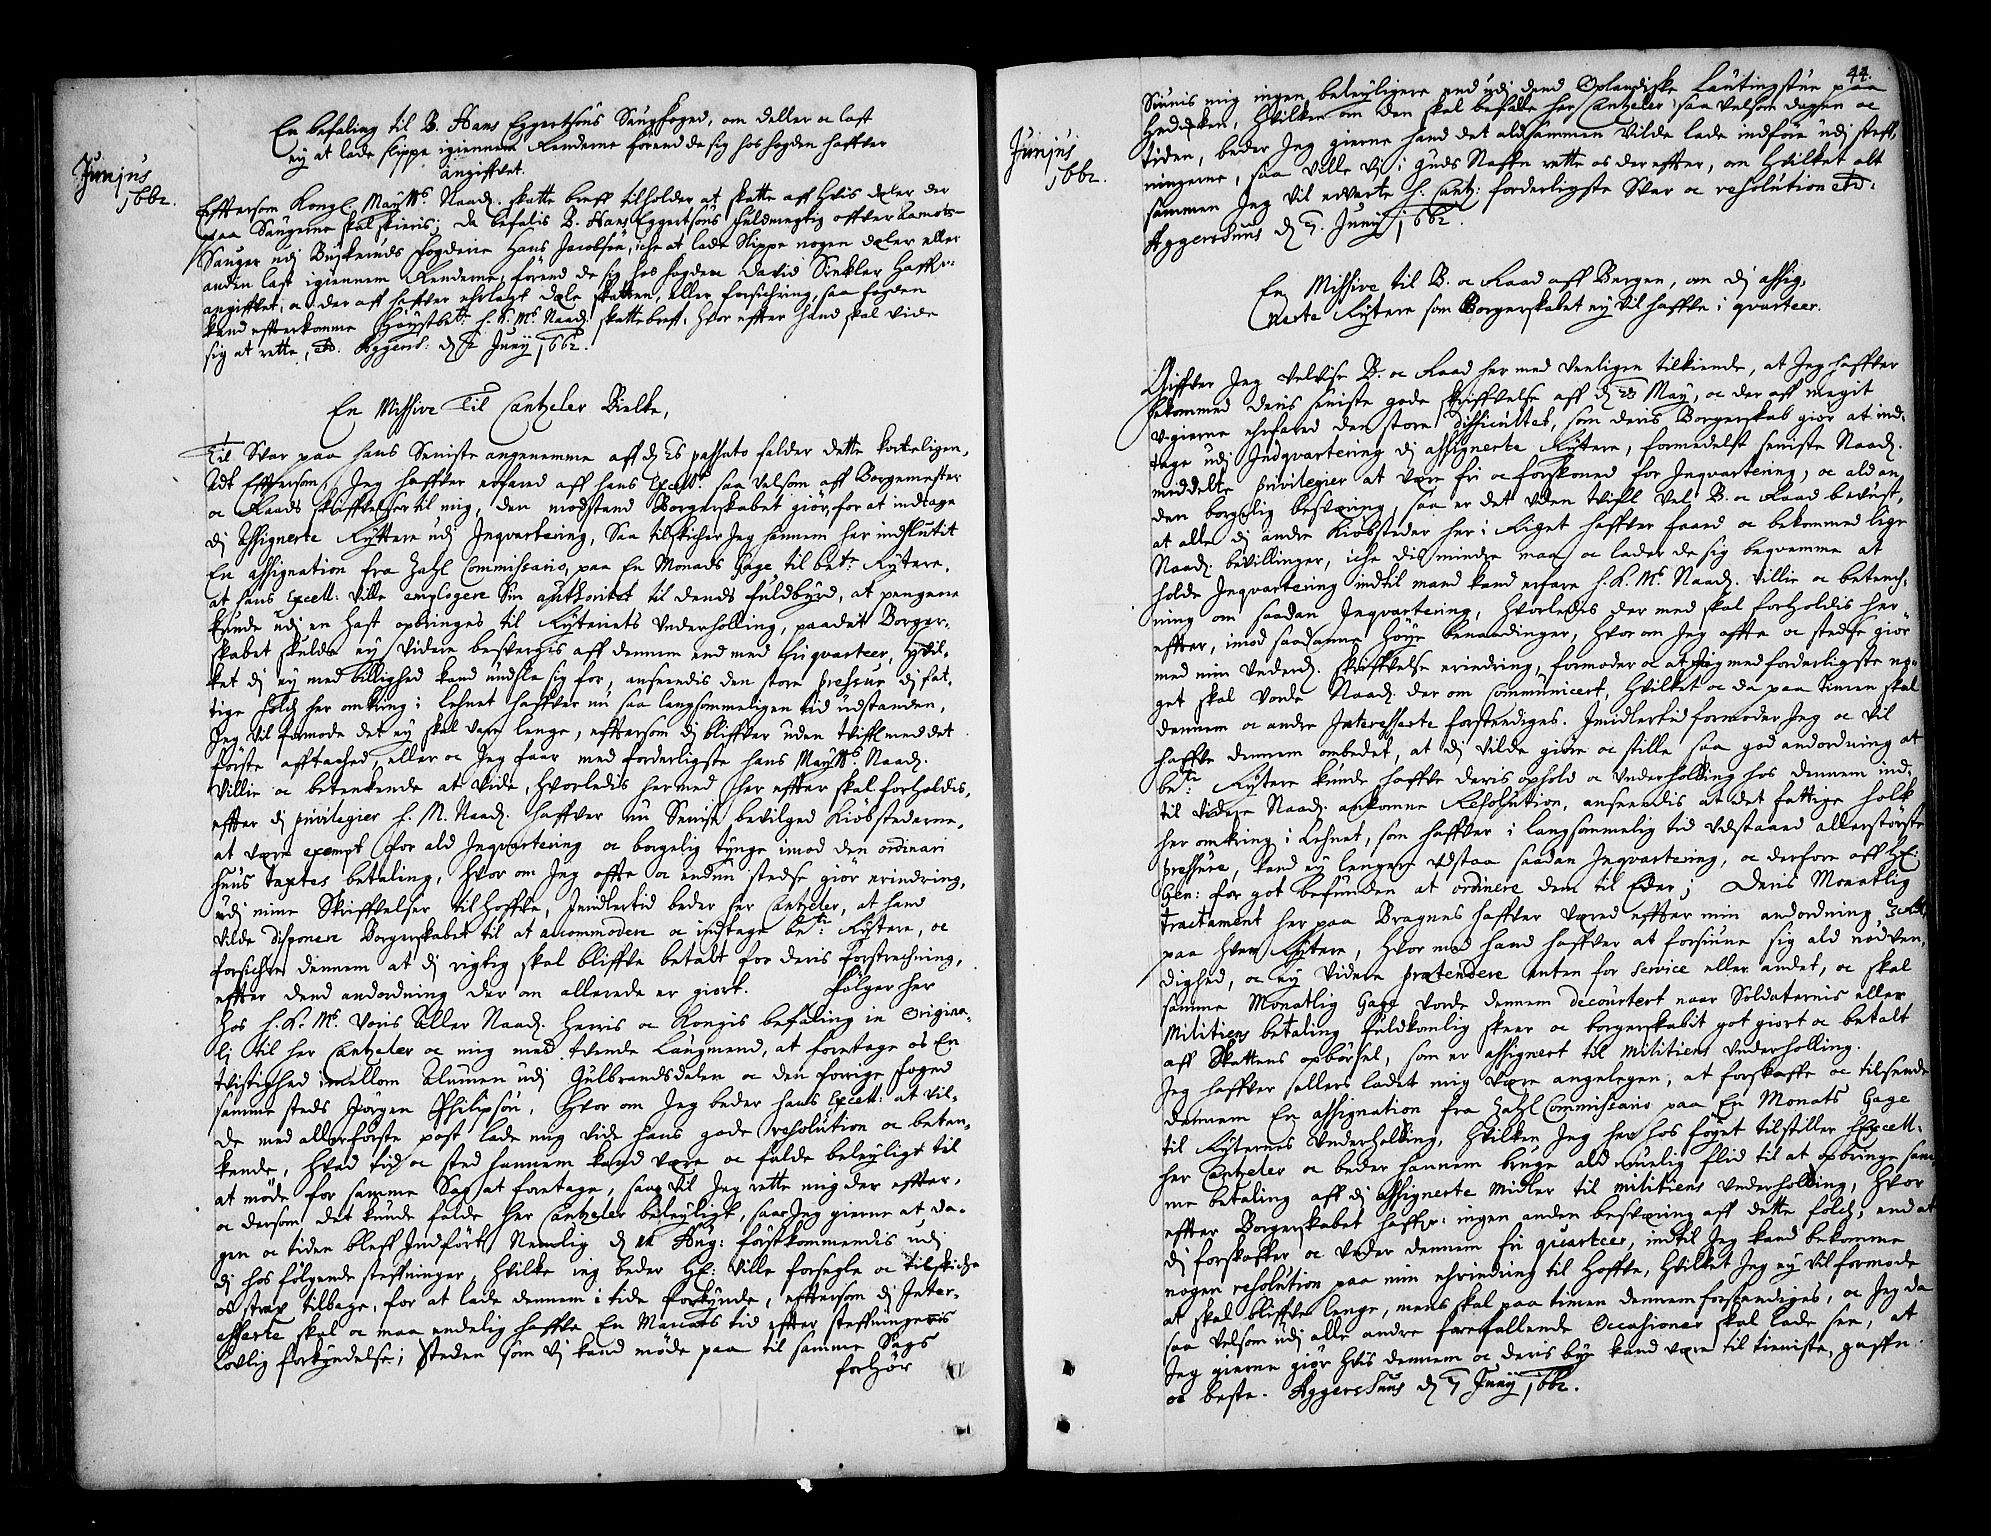 Junius
1662.
En befaling til B. Hans Eggertsøns Saugfoged, om deller oc last
ey at lade slippe igiennem Renderne førend de sig hos fogden haffver
angiffvet.
Efftersom Kongl. Maÿtts Naadj. skatte breff tilholder at skatte aff hvis deler der
paa Saugerne skal skieris; da befalis B. Hans Eggertsøns fuldmegtig offver
Sauger udj Buskeruds fogderie Hans Jacobsøn, iche at lade Slippe nogen deler eller
anden last igiennem Renderne, førend de sig hos fogden David Sinkler haffr
angiffvet, oc der aff haffver erlagt dele skatten, eller forsichring, saa fogden
kand efftterkomme Høystbete H. K. Ms Naadj. skattebreff, hvor effter hand skal vide
sig at rette, etc. Aggersh: dj 2 Junij 1662.
En Missive Til Cantzeler Bielke,
Til Svar paa hans Seniste angenemme aff dj 26 passato falder dette korteligen,
Adt Efftersom, Jeg haffver erfared aff hans Excelltz saa velsom aff Borgemester
oc Raads skriffvelser til mig, den modstand Borgerskabet giør, for at indtage
dj Assignerte Ryttere udj Inqvartering, Saa tilskicher Jeg hannem her indslutit
En assignation fra Zahl Commissario, paa En Monads Gage til bete Rytere,
at hans Excell: ville employere Sin authoritet til dends fuldbyrd, at pengene
kunde udj en hast opbringes til Ryteriets Underholling, paadet Borger-
skabet skulde ey videre besvergis aff dennem end med fri qvarteer, hvil-
ket dj ey med billighed kand undsla sig for, anseendis den store pressur dj fat-
tige folch her omkring i Lehnet haffver nu saa langsommeligen tid udstanden,
Jeg vil formode det ey skal vare lenge, efftersom dj bliffver uden tvifl med det
første afftached, eller oc Jeg faar med forderligste hans Maÿtts Naadj.
Villie oc betenkende at vide, hvorledis hermed her effter skal forholdis,
effter dj privilegier H. M. Naadj. haffver nu Senist bevilged Kiøbstederne,
at være exempt for ald Inqvartering oc borgelig tynge imod den ordinari
huus taxtes betaling, hvor om Jeg offte oc endnu stedse giør erindring,
udj mine Skriffvelser til hoffve, Imidlertid beder her Cantzeler, at hand
vilde disponere Borgerskabet til at accommodere oc indtage bete Rytere, oc
forsichre dennem at dj rigtig skal bliffve betalt for deris forstrechning,
effter dend andordning der om allerede er giort. Følger her
hos H. K. Ms Voris aller Naadj. herris oc Kongis befaling in Origina-
li til her Cantzeler oc mig med tvende Laugmend, at foretage os En
tvistighed imellom Almuen udj Gulbrandsdalen oc den forrige foged
samme steds Jørgen Philipsøn, hvor om Jeg beder hans Excell: at vil-
de med allerførste post lade mig vide hans gode resolution oc beten-
kende, hvad tid oc sted hannem kand være oc falde beleyligt til
at møde for samme Sag at foretage, saa vil Jeg rette mig der effter,
oc dersom det kunde falde her Cantzeler beleyligt, saae Jeg gierne at da-
gen oc tiden bleff Indført, Nemlig dj Aug: førstkommendis udj
dj hos følgende steffninger, hvilke jeg beder HE: ville forsegle oc tilskiche
os strax tilbage, for at lade dennem i tide forkynde, efftersom dj Inter-
esserte skal oc maa endelig haffve En Maanets tid effter steffningernis
lovlig forkyndelse; Steden som vj kand møde paa til samme Sags
forhør
44.
Junius
1662.
Siunis mig ingen beleyligere end udj dend Oplandiske Lautingstue paa
, hvilken om den skal befalle her Cantzeler saa velsom dagen oc
tiden, beder Jeg gierne hand det aldsammen vilde lade indføre udj steff-
ningerne, saa ville vj i Guds Naffn rette os der effter, om hvilket alt
sammen Jeg vil erverte H. Cantz: forderligste Svar oc resolution etc.
Aggershuus dj 7. Junij 1662.
En Missive til B. oc Raad aff Bergen, om dj assig-
nerte Rytere som Borgerskabet ey vil haffve i qvarteer.
Giffver Jeg velvise B. oc Raad her med venligen tilkiende, at Jeg haffver
bekommed deris seniste gode skriffvelse aff dj 23 May, oc der aff megit
vgierne erfared den store difficultet, som deris Borgerskab giør at ind-
tage udj Indqvartering dj assignerte Rytere, formedelst seniste Naadj.
meddelte privilegier at være fri oc forskoned for Inqvartering, oc ald an-
den borgelig besvering, saa er det uden tvifl vel B. oc Raad bevust,
at alle dj andre Kiøbsteder her i Riget haffver faaed oc bekommed lige
Naadj. bevillinger, iche dis mindre maa oc lader de sig beqvemme at
holde Inqvartering indtil mand kand erfare H. K. Ms. Naadj. villie oc betench-
ning om saadan Inqvartering, hvorledis der med skal forholdis her-
effter, imod saadanne høye benaadinger, hvor om Jeg offte oc stedse giør
med min Underdj. skriffvelse erindring, formoder oc at Jeg med forderligste no-
get skal vorde Naadj. der om communicert, hvilket oc da paa timen skal
dennem oc andre Interesserte forstendiges. Imidlertid formoder Jeg oc vil
haffve dennem ombedet, at dj vilde giøre oc stille saa god andordning at
bete Rytere kunde haffve deris ophold oc Underholding hos dennem ind-
til videre Naadj. ankomne Resolution, anseendis at det fattige folk
her omkring i Lehnet, som haffver i langsommelig tid udstaaed allerstørste
pressure, kand ey lengere udstaa saadan Inqvartering, oc derfore aff HE:
Gen: for got befunden at ordinere dem til Eder; Deris Monatlig
tractament her paa Bragnes haffver vered effter min andordning,
paa hver Rytere, hvor med hand haffver at forsiune sig ald nødven-
dighed, oc ey videre prætendere enten for service eller andet, oc skal
samme Monatlig Gage vorde dennem decourtert naar Soldaternis eller
Militiens betaling fuldkomlig skeer oc borgerskabit got giort oc betalt
aff Skattens opbørsel, som er assignert til militiens Underholling.
Jeg haffver ellers ladet mig være angelegen, at forskaffe oc tilsende
dennem En assignation fra Zahl Commissario paa En Monats Gage
til Ryternes Underholling, hvilken Jeg her hos føyet tilstiller HExcell:
her Cantzeler oc beder hannem bruge ald muelig flid til at opbringe sam-
me betaling aff dj Assignerte midler til militiens Underholding, hvor
effter Borgerskabet haffr: ingen anden besvering aff dette folch, end at
dj forskaffer oc under dennem fri quarteer, indtil Jeg kand bekomme
nogen resolution paa min erindring til hoffve, hvilket Jeg ey vil formode
at skal bliffve lenge, mens skal paa timen dennem forstendiges, oc Jeg da
saa velsom udj alle andre forefallende Occasioner skal lade see, at
Jeg gierne giør hvis dennem oc deris bye kand være til tieniste, gaffn
oc beste. Aggershuus dj 7 Junij 1662.